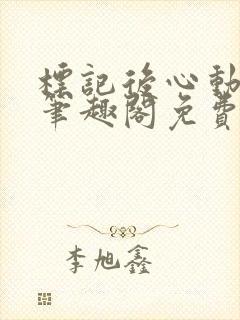 標記後心動
筆趣閣免費
李旭鑫